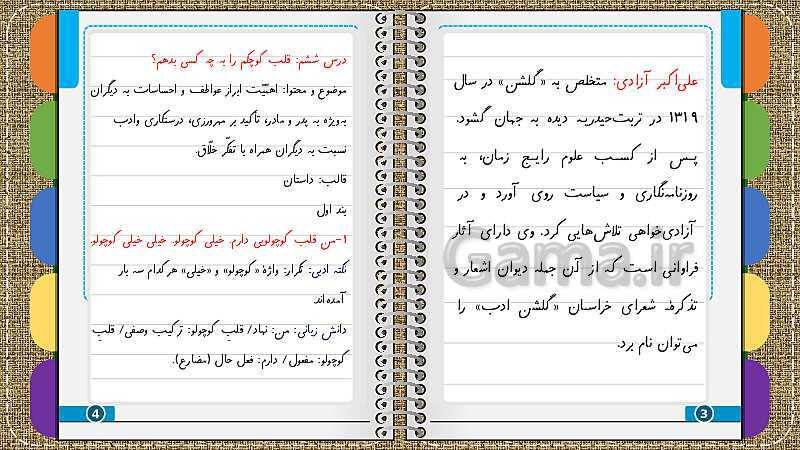 علی‌اکبر آزادی: متخلص به «گلشن» در سال
۱۳۱۹ در تربت‌حیدریه دیده به جهان گشود.
پس از کسب علوم رایج زمان، به
روزنامه‌نگاری و سیاست روی آورد و در
آزادی‌خواهی تلاش‌هایی کرد. وی دارای آثار
فراوانی است که از آن جمله دیوان اشعار و
تذکرهٔ شعرای خراسان «گلشن ادب» را
می‌توان نام برد.
3
درس ششم: قلب کوچکم را به چه کسی بدهم؟
موضوع و محتوا: اهمّیّت ابراز عواطف و احساسات به دیگران
به‌ویژه به پدر و مادر، تأکید بر مهرورزی، درستکاری وادب
نسبت به دیگران همراه با تفکّر خلّاق.
قالب: داستان
بند اول
۱-من قلب کوچولویی دارم. خیلی کوچولو. خیلی خیلی کوچولو.
نکته ادبی: تکرار: واژهٔ «کوچولو» و «خیلی» هرکدام سه بار
آمده‌اند.
دانش زبانی: من: نهاد/ قلبِ کوچولو: ترکیب وصفی/ قلبِ
کوچولو: مفعول/ دارم: فعل حال (مضارع).
4
Gama.ir